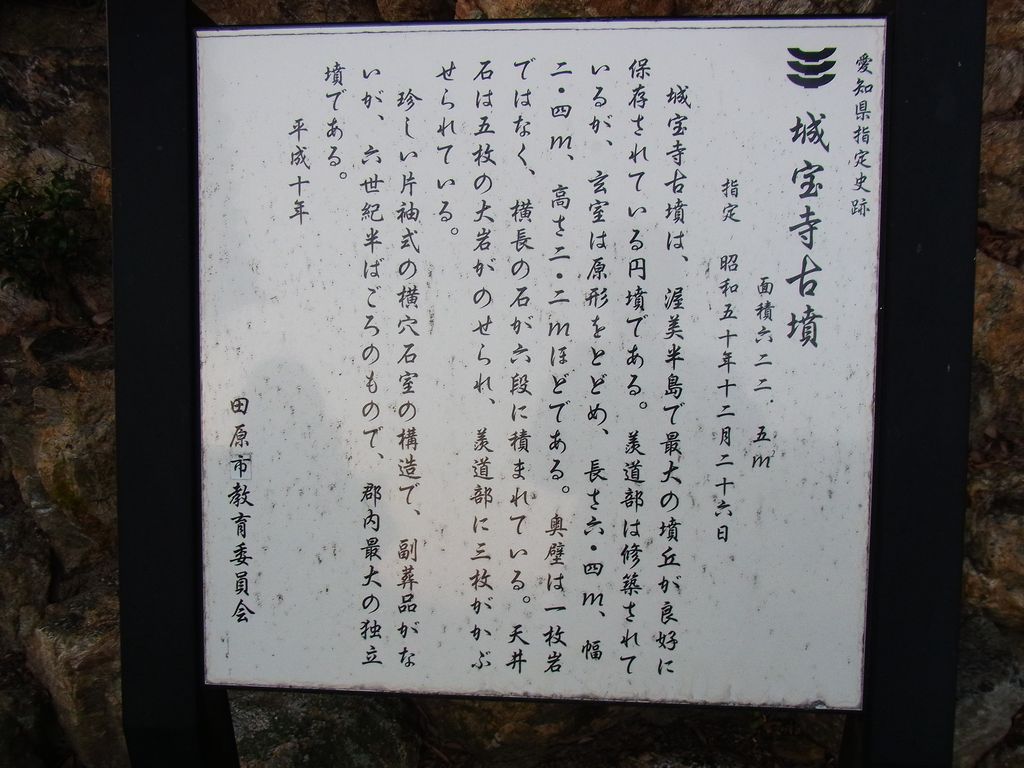 愛知県指定史跡
城宝寺古墳
面積六二二.五m
指定 昭和五十年十二月二十六日
城宝寺古墳は、渥美半島で最大の墳丘が良好に
保存されている円墳である。羨道部は修築されて
いるが、玄室は原形をとどめ、長さ六・四m、幅
二・四m、高さ二・二mほどである。奥壁は一枚岩
ではなく、横長の石が六段に積まれている。天井
石は五枚の大岩がのせられ、羨道部に三枚がかぶ
せられている。
珍しい片袖式の横穴石室の構造で、副葬品がな
いが、六世紀半ばごろのもので、郡内最大の独立
墳である。
平成十年
田原市教育委員会